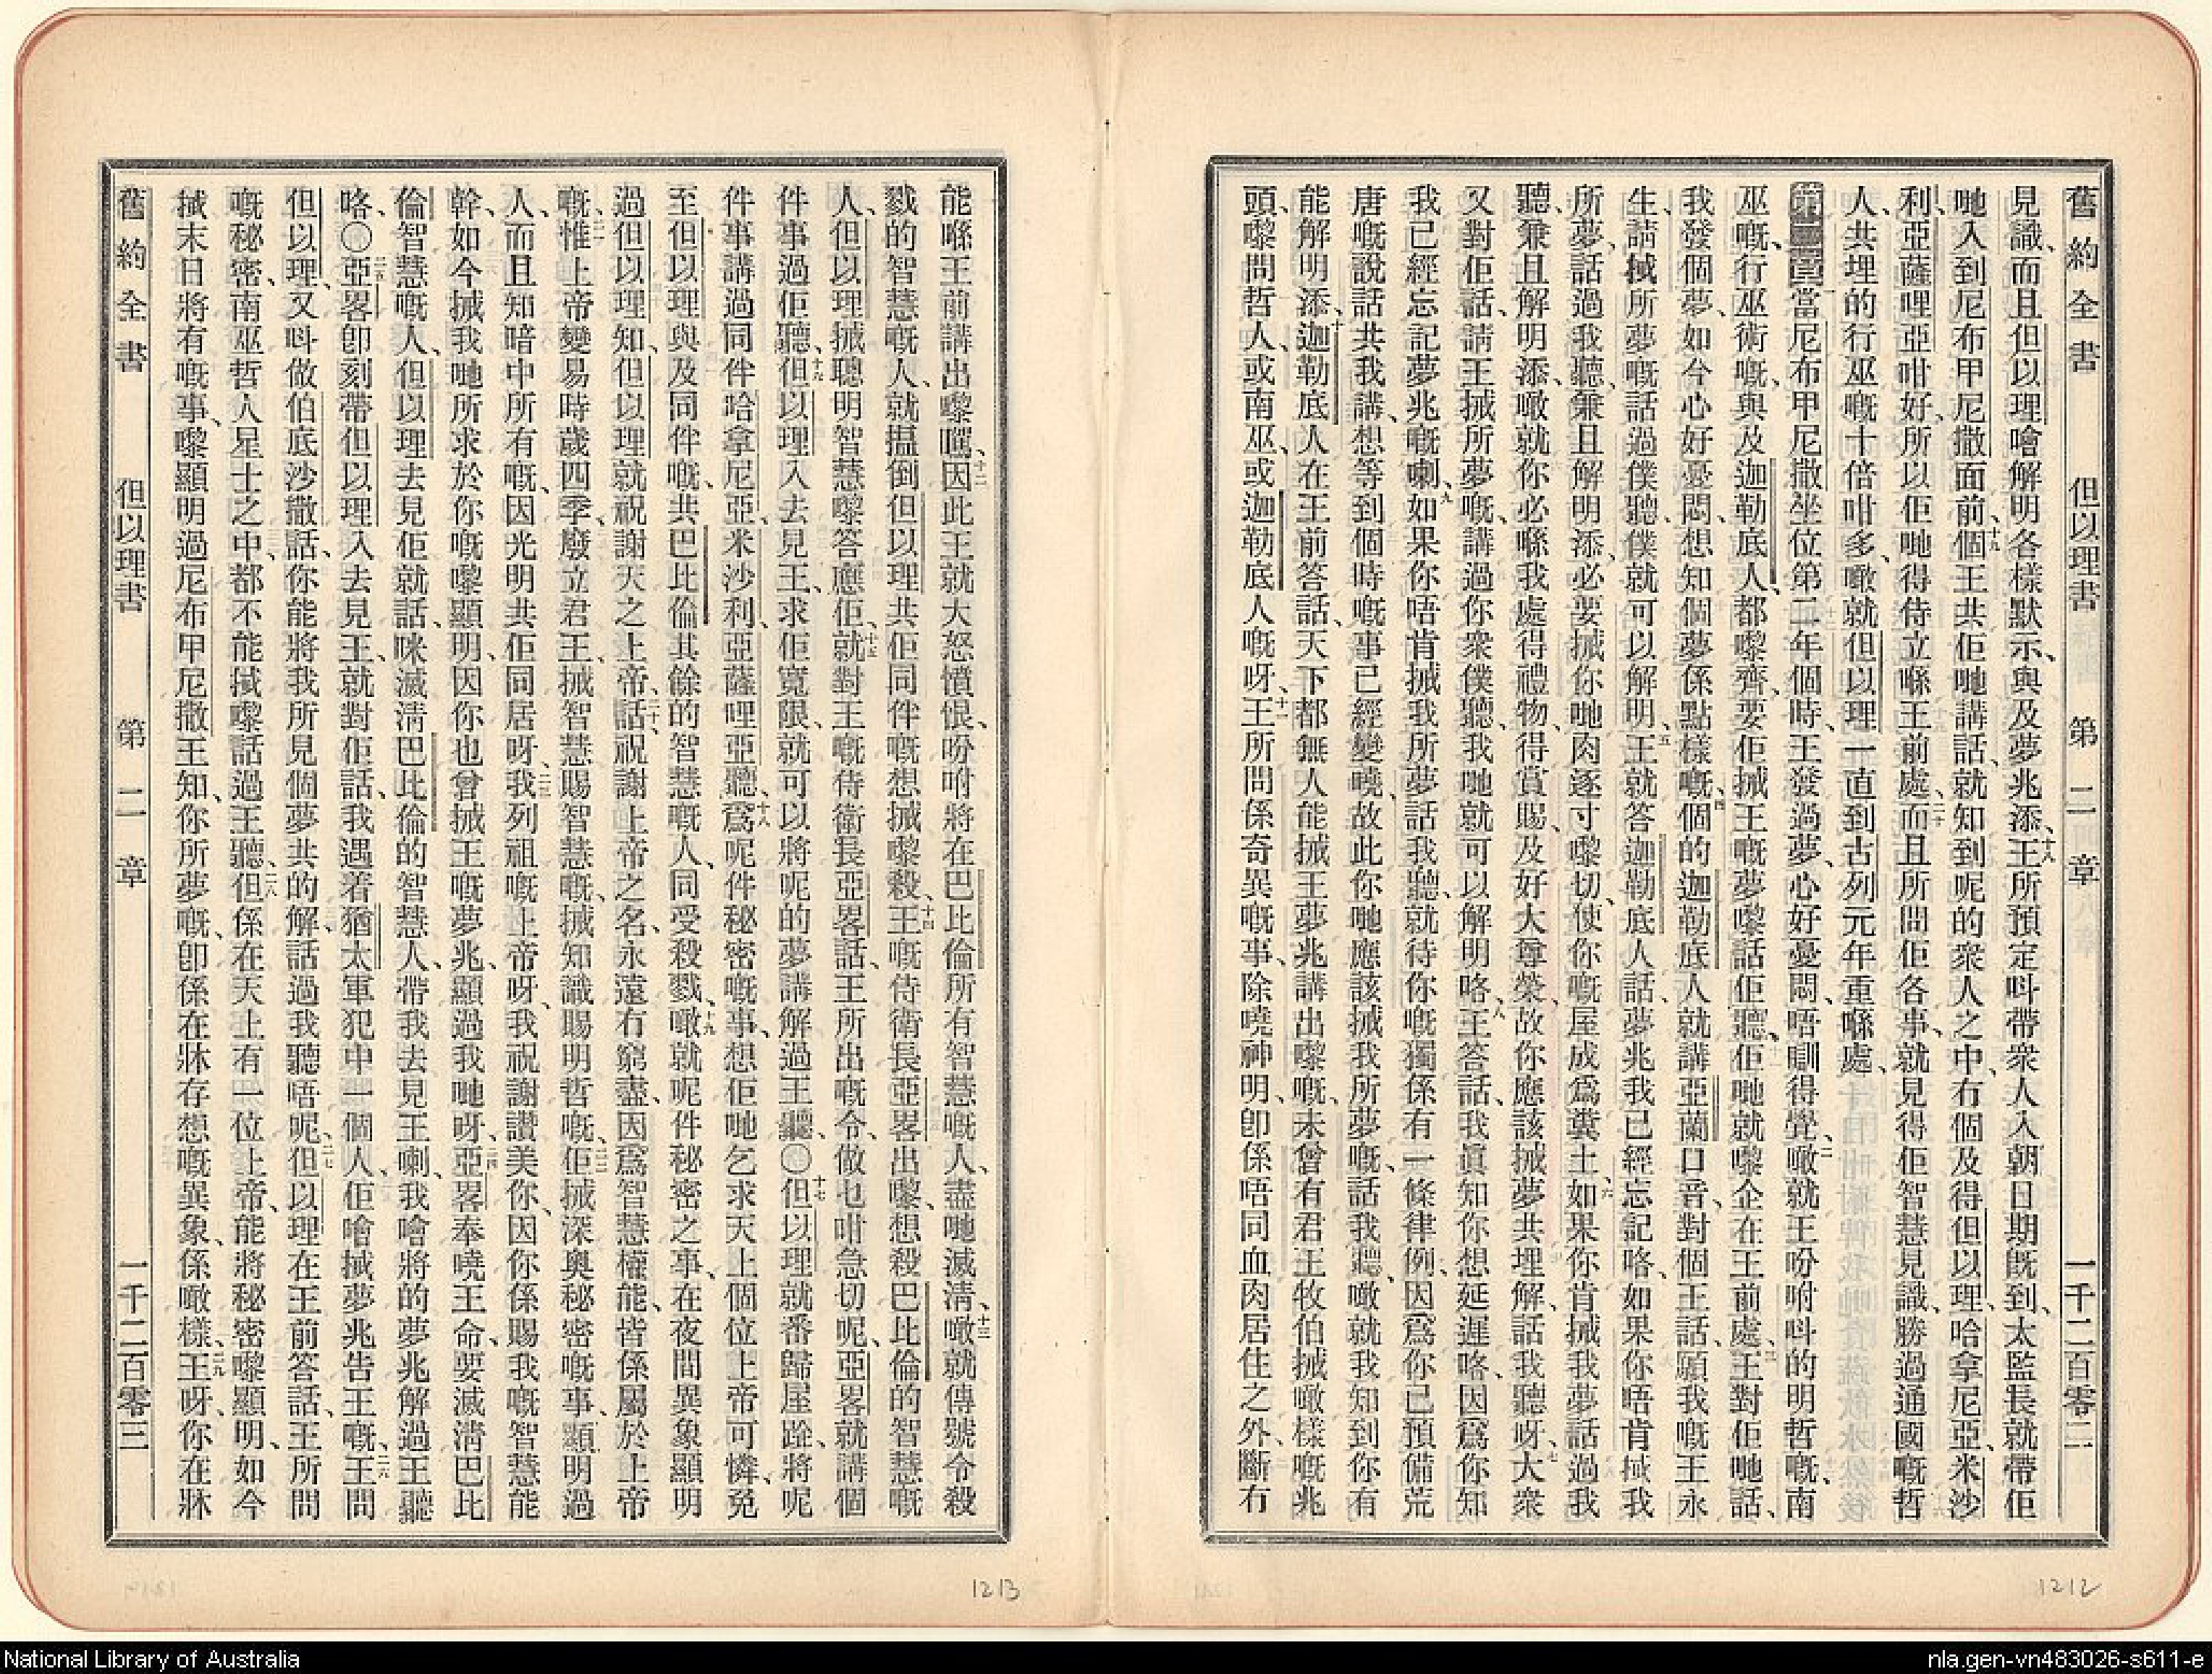 舊約全書 但以理書 第二章 一千二百零二
見識、而且但以理噲解明各樣默示、與及夢兆添、十八王所預定呌帶衆人入朝日期旣到、太監長就帶佢
哋入到尼布甲尼撒面前、十九個王共佢哋講話、就知到呢的衆人之中、冇個及得但以理、哈拿尼亞、米沙
利、亞薩哩亞咁好、所以佢哋得侍立喺王前處、二十而且所問佢各事、就見得佢智慧見識、勝過通國嘅哲
人、共埋的行巫嘅十倍咁多、噉就但以理一直到古列元年重喺處、
第二章當尼布甲尼撒坐位第二年個時、王發過夢、心好憂悶、唔瞓得覺、二噉就王吩咐呌的明哲嘅、南
巫嘅、行巫術嘅、與及迦勒底人、都嚟齊、要佢搣王嘅夢嚟話佢聽、佢哋就嚟企在王前處、三王對佢哋話、
我發個夢、如今心好憂悶、想知個夢係點樣嘅、四個的迦勒底人就講亞蘭口音、對個王話、願我嘅王永
生、請搣所夢嘅話過僕聽、僕就可以解明、五王就答迦勒底人話、夢兆我已經忘記咯、如果你唔肯搣我
所夢、話過我聽、兼且解明添、必要搣你哋肉逐寸嚟切、使你嘅屋成爲糞土、六如果你肯搣我夢話過我
聽、兼且解明添、噉就你必喺我處得禮物、得賞賜、及好大尊榮、故你應該搣夢共埋解、話我聽呀、七大衆
又對佢話、請王搣所夢嘅、講過你衆僕聽、我哋就可以解明咯、八王答話、我眞知你想延遲咯、因爲你知
我已經忘記夢兆嘅喇、九如果你唔肯搣我所夢話我聽、就待你嘅獨係有一條律例、因爲你已預備荒
唐嘅說話共我講、想等到個時嘅事已經變曉、故此你哋應該搣我所夢嘅、話我聽、噉就我知到你有
能解明添、十迦勒底人在王前答話、天下都無人能搣王夢兆講出嚟嘅、未曾有君王牧伯搣噉樣嘅兆
頭、嚟問哲人、或南巫、或迦勒底人嘅呀、十一王所問係奇異嘅事、除曉神明、卽係唔同血肉居住之外、斷冇
能喺王前講出嚟嘅、十二因此王就大怒憤恨、吩咐將在巴比倫所有智慧嘅人、盡哋滅淸、十三噉就傳號令殺
戮的智慧嘅人、就搵倒但以理共佢同伴嘅想搣嚟殺、十四王嘅侍衛長亞畧出嚟、想殺巴比倫的智慧嘅
人、但以理搣聰明智慧嚟答應佢、十五就對王嘅侍衛長亞畧話、王所出嘅令、做乜咁急切呢、亞畧就講個
件事過佢聽、十六但以理入去見王、求佢寬限、就可以將呢的夢講解過王聽、〇十七但以理就番歸屋跲、將呢
件事講過同伴哈拿尼亞、米沙利、亞薩哩亞聽、十八爲呢件秘密嘅事、想佢哋乞求天上個位上帝可憐、免
至但以理與及同伴嘅、共巴比倫其餘的智慧嘅人、同受殺戮、十九噉就呢件秘密之事、在夜間異象顯明
過但以理知、但以理就祝謝天之上帝、二十話、祝謝上帝之名、永遠冇窮盡、因爲智慧權能、皆係屬於上帝
嘅、二一惟上帝變易時歲四季、廢立君王、搣智慧賜智慧嘅、搣知識賜明哲嘅、二二佢搣深奧秘密嘅事、顯明過
人、而且知暗中所有嘅、因光明共佢同居呀、二三我列祖嘅上帝呀、我祝謝讚美你、因你係賜我嘅智慧能
幹、如今搣我哋所求於你嘅嚟顯明、因你也曾搣王嘅夢兆、顯過我哋呀、二四亞畧奉曉王命、要滅淸巴比
倫智慧嘅人、但以理去見佢就話、咪滅淸巴比倫的智慧人、帶我去見王喇、我噲將的夢兆解過王聽
咯、〇二五亞畧卽刻帶但以理入去見王、就對佢話、我遇着猶太軍犯中一個人、佢噲搣夢兆告王嘅、二六王問
但以理、又呌做伯底沙撒話、你能將我所見個夢共的解、話過我聽唔呢、二七但以理在王前答話、王所問
嘅秘密、南巫哲人星士之中、都不能搣嚟話過王聽、二八但係在天上有一位上帝、能將秘密嚟顯明、如今
搣末日將有嘅事、嚟顯明過尼布甲尼撒王知、你所夢嘅、卽係在牀存想嘅異象、係噉樣、二九王呀、你在牀
舊約全書 但以理書 第二章 一千二百零三
1213
1212
National Library of Australia
nla.gen-vn483026-s611-e